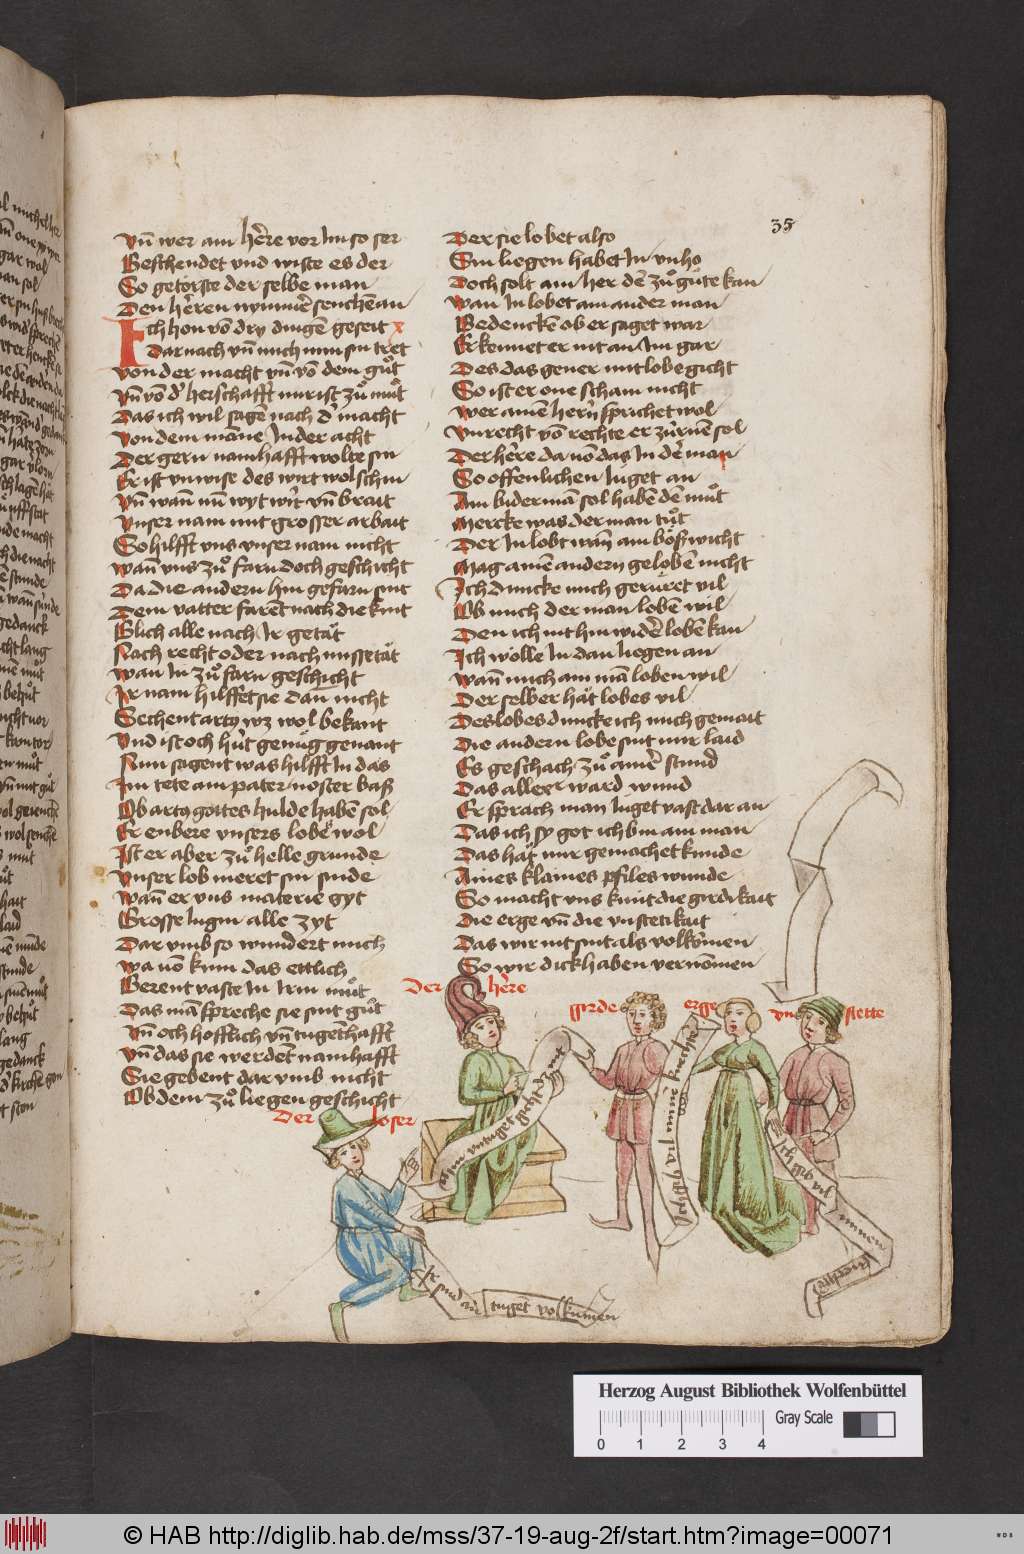 35
Vn̄ wer am he͛re vor Im so ser
Beschendet vnd wiste es der
So getörste der selbe man
Den he͛ren nymme͛ senchēan
Ich hon vō dry dingē geseit x
Darnach vn̄ mich mm sin tret
Von der macht vn̄ vō dem gůt
Vn̄ vō d͛ herschafft mir ist zů můt
Das ich wil sagē nach d͛ macht
Von dem māne In der acht
Der gern namhafft wolte sin
Er ist vnwise des wirt wol schin
Vn̄ wan̄ mm wyt wirt vn̄ brait
Vnser nam mit grosser arbait
So hilfft vns vnser nam nicht
Wan̄ vns zů farn doch geschicht
Da die andern hin gefarn sint
Dem vatter farēt nach die kint
Glich alle nach Ir getät
Nach recht oder nach missetät
Wan In zů farn geschicht
Ir nam hilffet sie dan̄ nicht
Sechent arty wz wol bekant
Vnd ist och hüt genüg genant
Nun sagent was hilfft In das
Im tete am pater noster baß
Ob arty gottes hulde habē sol
Er enbere vnsers lobe wol
Ist er aber zů helle grunde
Vnser lob meret sin sinde
Wan̄ er vns materie gyt
Grosse lugin alle zyt
Dar vmb so wundert mich
Wa vō kim das ettlich
Gerent vaste In Irm můt
Das mā spreche sie sint gůt
Vn̄ och hofflich vn̄ tugethafft
Vn̄ das sie werdēt namhafft
Sie gebent dar vmb nicht
Ob dem zů liegen geschicht
Der sie lobet also
Sin liegen habet In vnho
Doch solt am her dē zů gůte kan
Wan In lobet am ander man
Bedenckē ob er saget war
Erkennet er nit an Im gar
Des das gener mit lobe gicht
So ist er one scham nicht
Wer amē hern̄ sprichet wol
Vnrecht vō rechte er zürnē sol
Der he͛re da vō das In de͛ man
So offenlichen luget an
Am biderman̄ sol habē dē můt
Mercke was der man tůt
Der In lobt wan̄ am bößwicht
Mag amē andern̄ geloben nicht
Ich duncke mich gerüret vil
Ob mich der man lobē wil
Den ich nit hin wide͛ lobē kan
Ich wölle In dan liegen an
Wan̄ mich am mā loben wil
Der selber hät lobes vil
Des lobes duncke ich mich gemait
Die andern lobe sint mir laid
Es geschach zů ame͛ stund
Das allexer ward wund
Er sprach man luget vast dar an
Das ich sy got ich bin am man
Das hät mir gemachet kunde
Aines klaines pfiles wunde
So macht vns kunt die girdikait
Die erge vn̄ die vnstetikait
Das wir nit sint als volkōmen
So wir dick haben vernōmen
Der he͛re
girde
erge
vn stette
Der loser
Ir sind an tugēt volkumen
Ich gib vil minnen
knechte